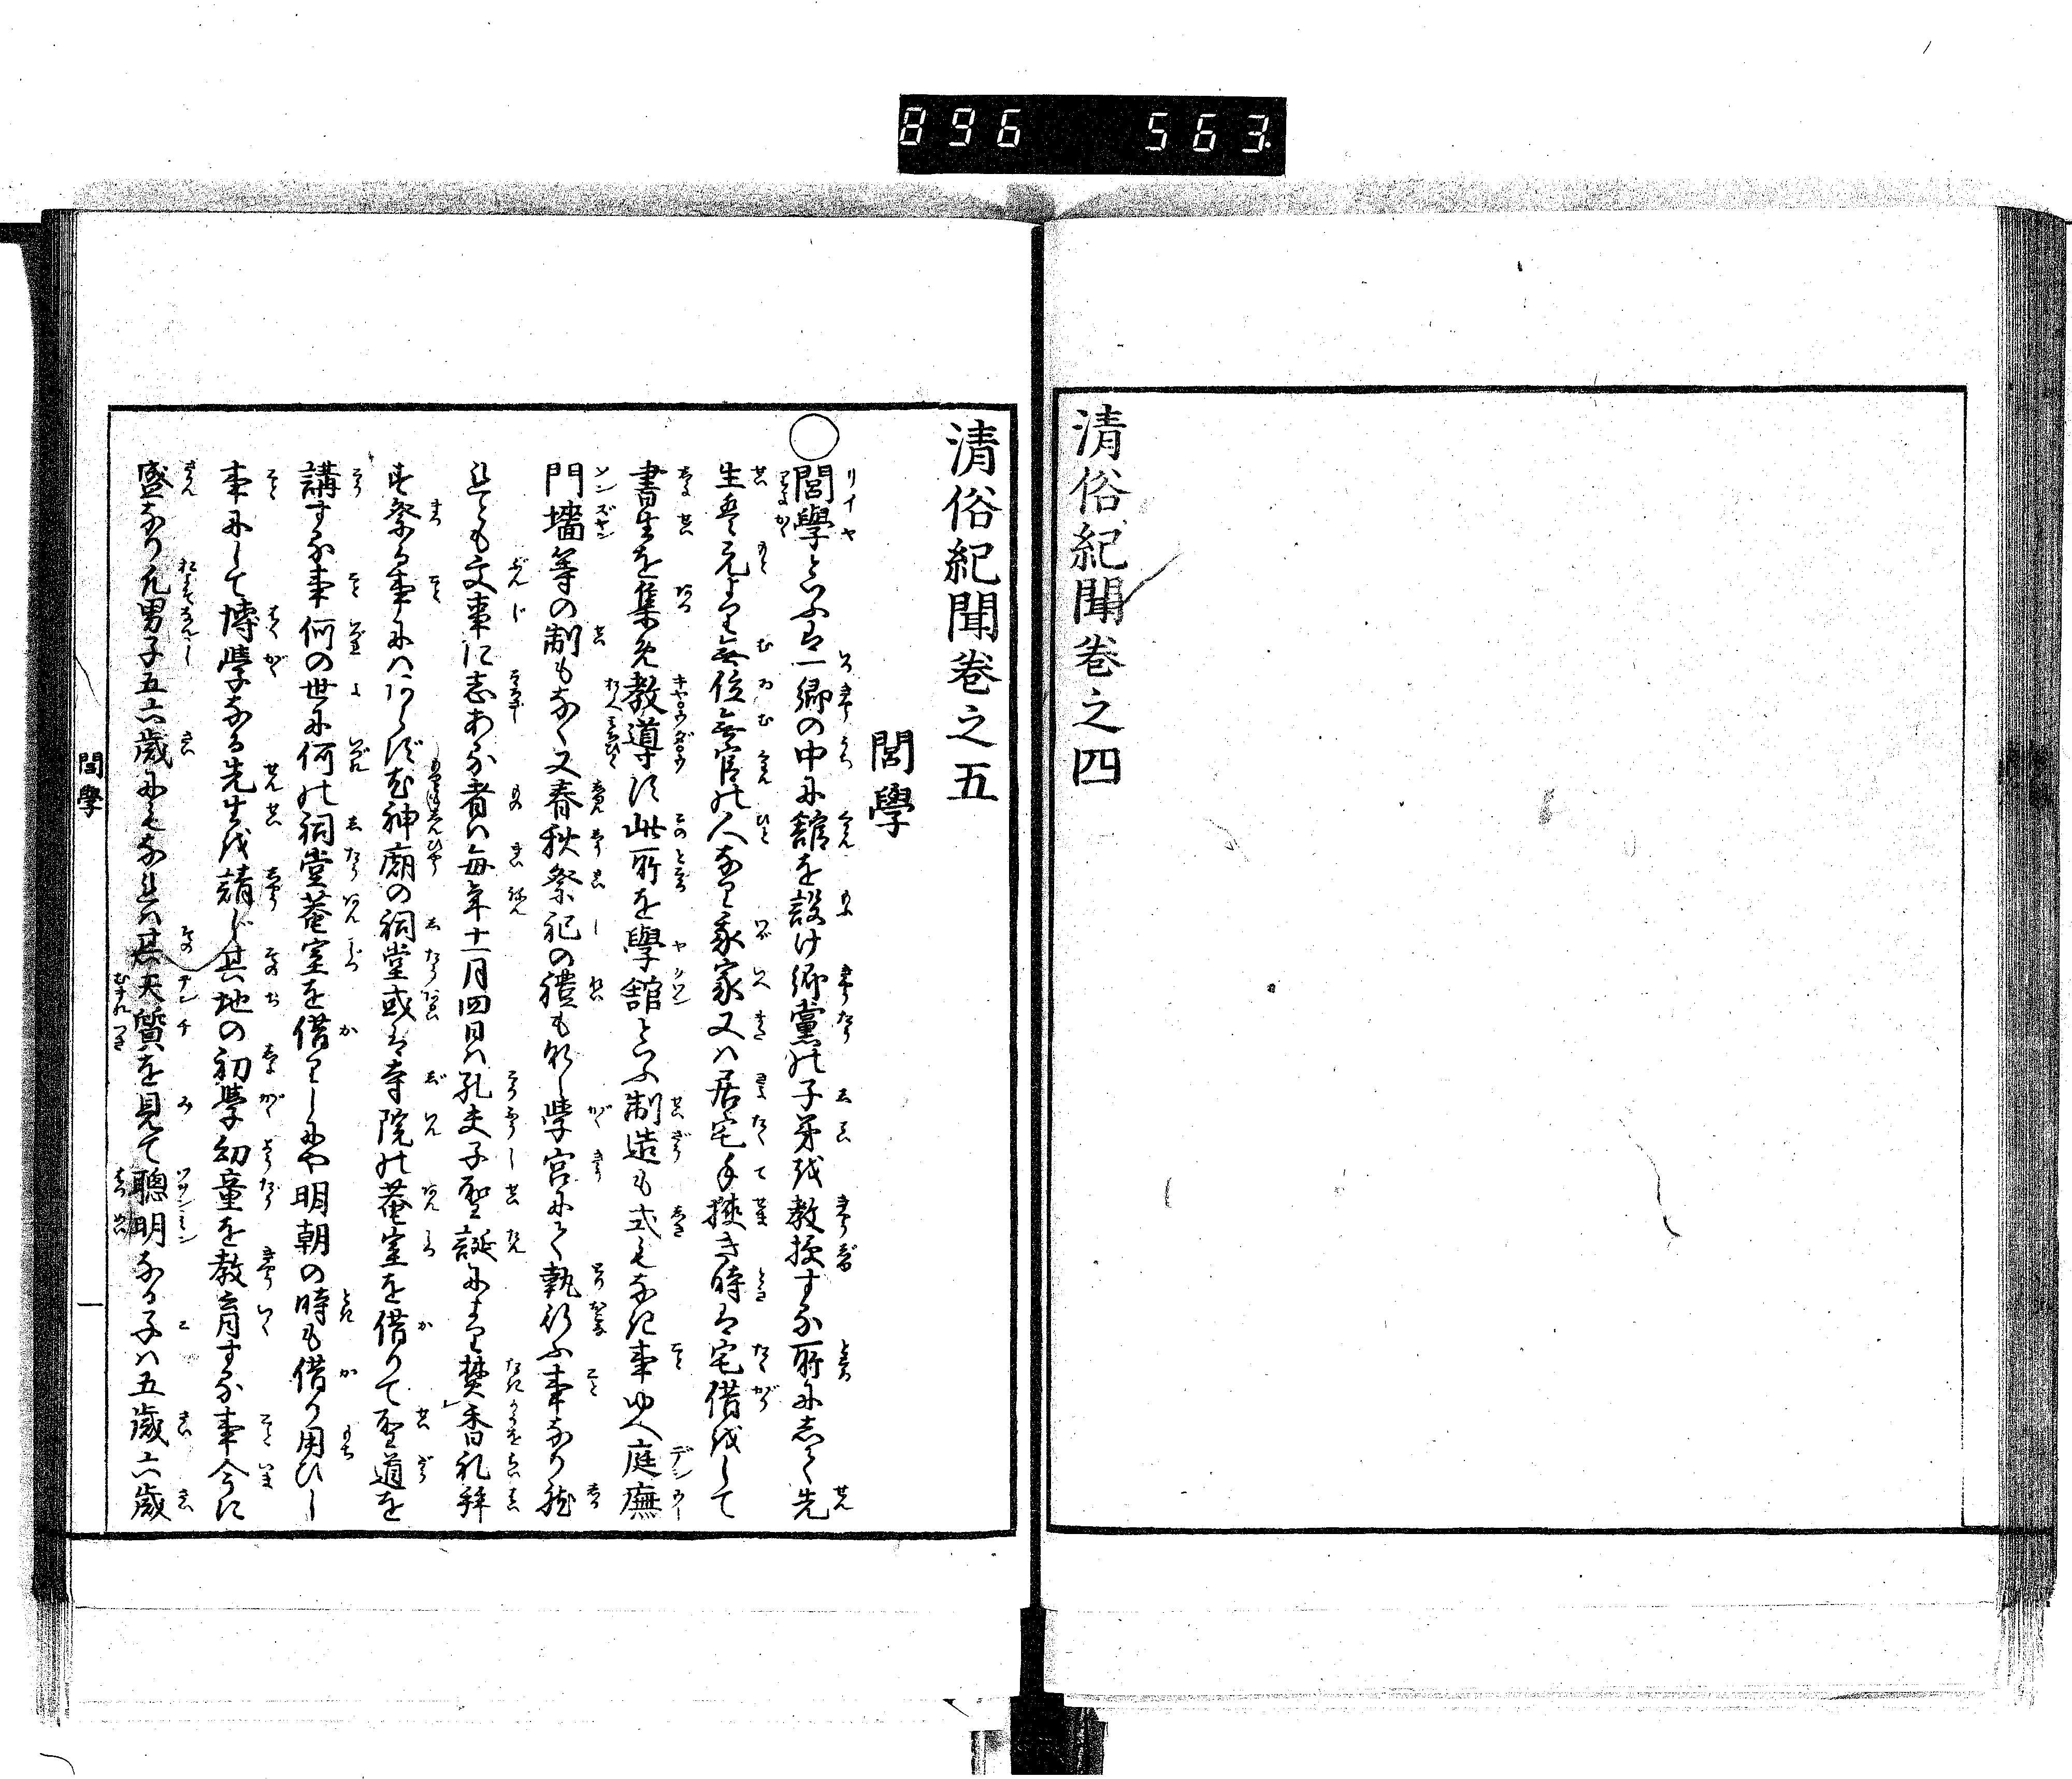 896 563
清俗紀聞卷之四
清俗紀聞卷之五
閭學
○閭學といふは一郷の中に舘を設け郷黨の子弟を教授する所にして先
生は元より無位無官の人なり家家又は居宅手狹き時は宅借をして
書生を集め教導す此所を學舘といふ制造も式もなき事ゆへ庭廡
門墻等の制もなく又春秋祭祀の禮もなし學宮にて執行ふ事なり然
れとも文事に志ある者は毎年十一月四日は孔夫子聖誕により焚香礼拜
し祭る事にはあらす神廟の祠堂或は寺院の菴室を借りて聖道を
講する事何の世に何の祠堂菴室を借りしにや明朝の時も借り用ひし
事にして博學なる先生を請し其地の初學幼童を教育する事今に
盛なり凡男子五六歳にもなれは其天質を見て聰明なる子は五歳六歳
閭學
一